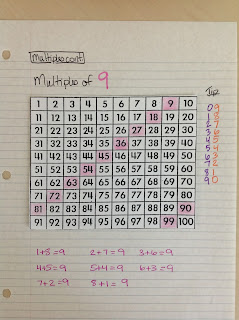 Multiples cont
Multiples of 9
Tip
1 2 3 4 5 6 7 8 9 10
11 12 13 14 15 16 17 18 19 20
21 22 23 24 25 26 27 28 29 30
31 32 33 34 35 36 37 38 39 40
41 42 43 44 45 46 47 48 49 50
51 52 53 54 55 56 57 58 59 60
61 62 63 64 65 66 67 68 69 70
71 72 73 74 75 76 77 78 79 80
81 82 83 84 85 86 87 88 89 90
91 92 93 94 95 96 97 98 99 100
0 9
1 8
2 7
3 6
4 5
5 4
6 3
7 2
8 1
9 0
1+8=9 2+7=9 3+6=9
4+5=9 5+4=9 6+3=9
7+2=9 8+1=9